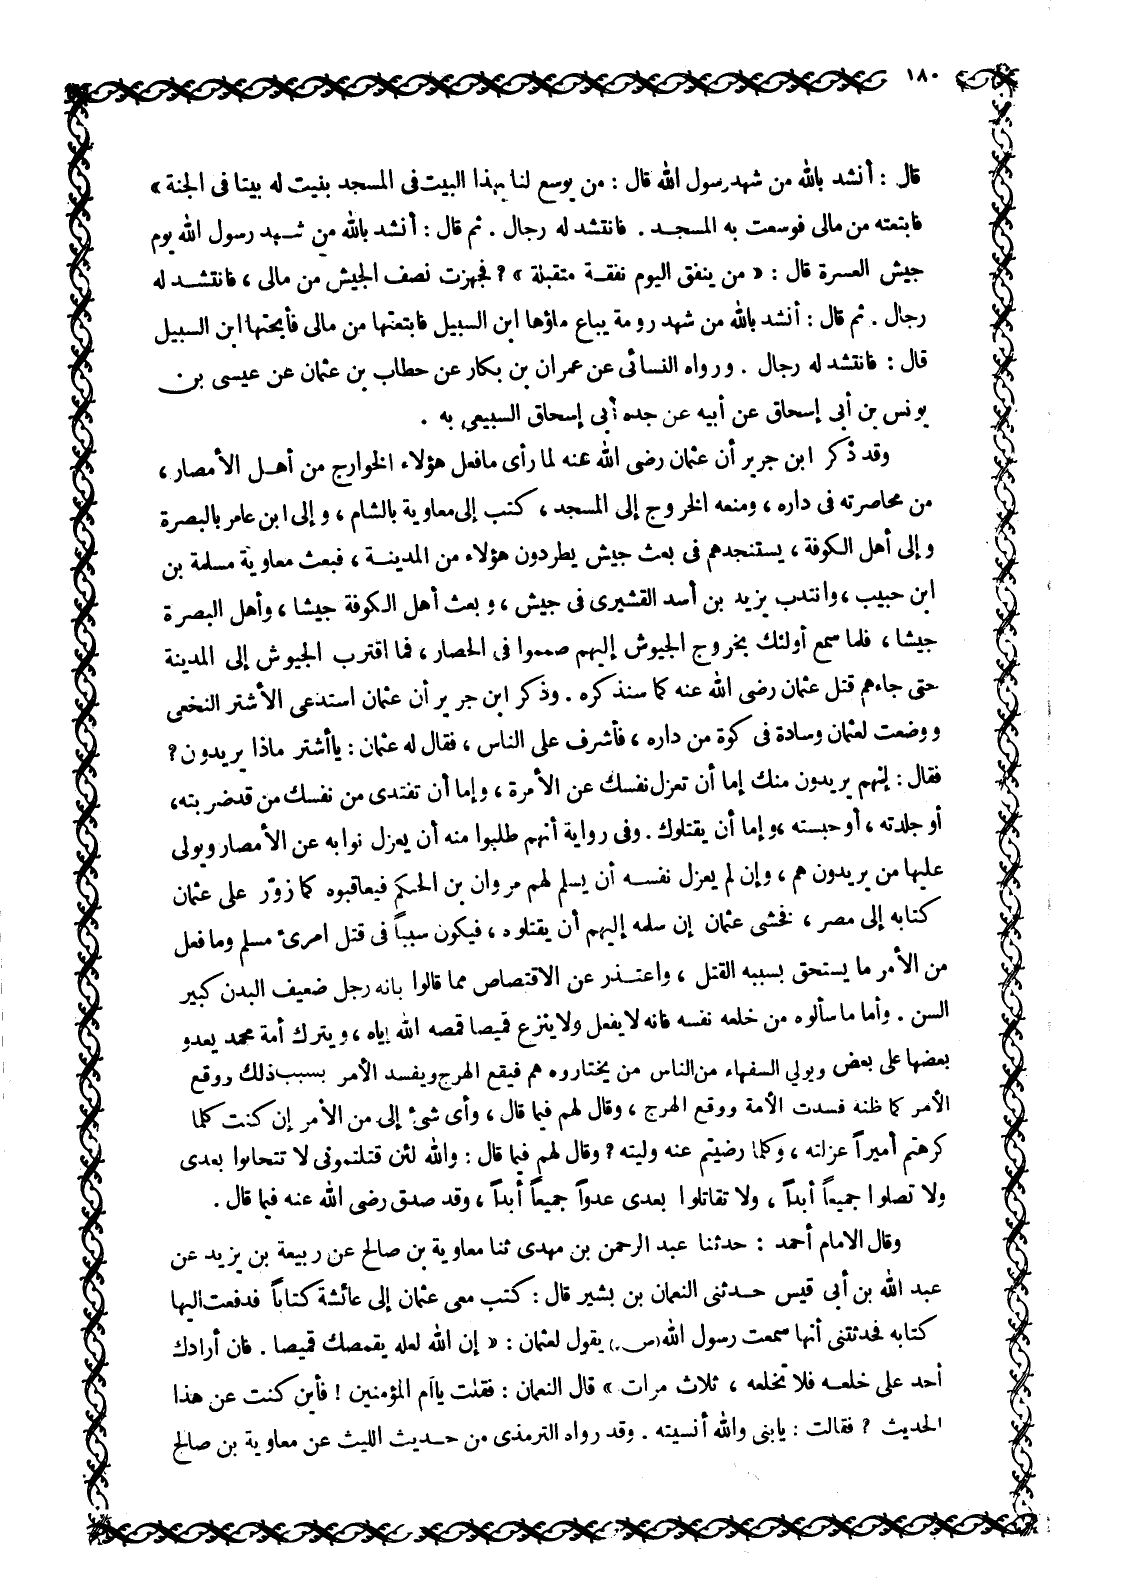 ١٨٠
قال : أنشد بالله من شهد رسول الله قال : من يوسع لنا بهذا البيت فى المسجد بنيت له بيتا فى الجنة »
فابتعته من مالى فوسعت به المسجد . فانتشد له رجال . ثم قال : أنشد بالله من شهد رسول الله يوم
جيش العسرة قال : « من ينفق اليوم نفقة متقبلة » ? فجهزت نصف الجيش من مالى ، فانتشد له
رجال . ثم قال : أنشد بالله من شهد رومة يباع ماؤها ابن السبيل فابتعتها من مالى فأبحتها ابن السبيل
قال : فانتشد له رجال . ورواه النسائى عن عمران بن بكار عن حطاب بن عثمان عن عيسى بن
يونس بن أبى إسحاق عن أبيه عن جده أبى إسحاق السبيعى به .
وقد ذكر ابن جرير أن عثمان رضى الله عنه لما رأى ما فعل هؤلاء الخوارج من أهل الأمصار ،
من محاصرته فى داره ، ومنعه الخروج إلى المسجد ، كتب إلى معاوية بالشام ، وإلى ابن عامر بالبصرة
وإلى أهل الكوفة ، يستنجدهم فى بعث جيش يطردون هؤلاء من المدينة ، فبعث معاوية مسلمة بن
ابن حبيب ، وانتدب يزيد بن أسد القشيرى فى جيش ، وبعث أهل الكوفة جيشا ، وأهل البصرة
جيشا ، فلما سمع أولئك بخروج الجيوش إليهم صمموا فى الحصار ، فما اقترب الجيوش إلى المدينة
حتى جاءهم قتل عثمان رضى الله عنه كما سنذكره . وذكر ابن جرير أن عثمان استدعى الأشتر النخعى
ووضعت لعثمان وسادة فى كوة من داره ، فأشرف على الناس ، فقال له عثمان : يا أشتر ماذا يريدون ?
فقال : إنهم يريدون منك إما أن تعزل نفسك عن الأمرة ، وإما أن تفتدى من نفسك من قد ضربته،
أو جلدته ، أو حبسته ، وإما أن يقتلوك . وفى رواية أنهم طلبوا منه أن يعزل نوابه عن الأمصار ويولى
عليها من يريدون هم ، وإن لم يعزل نفسه أن يسلم لهم مروان بن الحكم فيعاقبوه كما زوّر على عثمان
كتابه إلى مصر ، فخشى عثمان إن سلمه إليهم أن يقتلوه ، فيكون سبباً فى قتل امرئ مسلم وما فعل
من الأمر ما يستحق بسببه القتل ، واعتذر عن الاقتصاص مما قالوا بانه رجل ضعيف البدن كبير
السن . وأما ما سألوه من خلعه نفسه فانه لا يفعل ولا ينزع قميصا قمصه الله إياه ، ويترك أمة محمد يعدو
بعضها على بعض ويولي السفهاء من الناس من يختاروه هم فيقع الهرج ويفسد الأمر بسبب ذلك ووقع
الأمر كما ظنه فسدت الأمة ووقع الهرج ، وقال لهم فيما قال ، وأى شئ إلى من الأمر إن كنت كلما
كرهتم أميراً عزلته ، وكلما رضيتم عنه وليته ? وقال لهم فيما قال : والله لئن قتلتمونى لا تتحابوا بعدى
ولا تصلوا جميعاً أبداً ، ولا تقاتلوا بعدى عدواً جميعاً أبداً ، وقد صدق رضى الله عنه فيما قال .
وقال الامام أحمد : حدثنا عبد الرحمن بن مهدى ثنا معاوية بن صالح عن ربيعة بن يزيد عن
عبد الله بن أبى قيس حدثنى النعمان بن بشير قال : كتب معى عثمان إلى عائشة كتاباً فدفعت اليها
كتابه فحدثتنى أنها سمعت رسول الله (س) يقول لعثمان : « إن الله لعله يقمصك قميصا . فان أرادك
أحد على خلعه فلا تخلعه ، ثلاث مرات » قال النعمان : فقلت يا أم المؤمنين ! فأين كنت عن هذا
الحديث ? فقالت : يابنى والله أنسيته . وقد رواه الترمذى من حديث الليث عن معاوية بن صالح